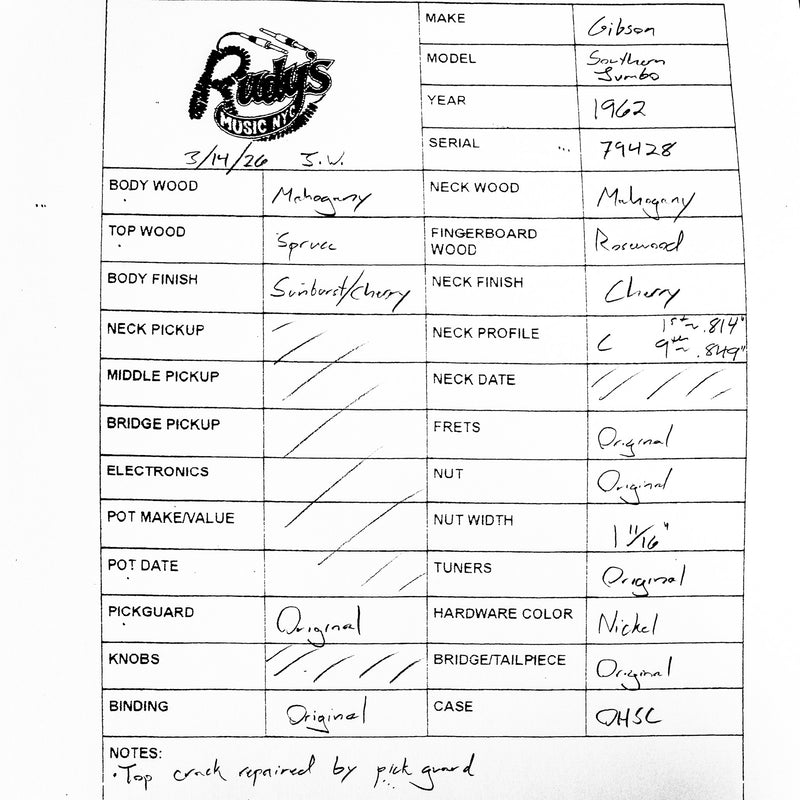 Rudy's
MUSIC NYC
3/14/26 J.W.
MAKE Gibson
MODEL Southern
Jumbo
YEAR 1962
SERIAL 79428
BODY WOOD Mahogany NECK WOOD Mahogany
TOP WOOD Spruce FINGERBOARD
WOOD Rosewood
BODY FINISH Sunburst/Cherry NECK FINISH Cherry
NECK PICKUP NECK PROFILE C 1st ~ .814"
9th ~ .849"
MIDDLE PICKUP NECK DATE
BRIDGE PICKUP FRETS Original
ELECTRONICS NUT Original
POT MAKE/VALUE NUT WIDTH 1 11/16"
POT DATE TUNERS Original
PICKGUARD Original HARDWARE COLOR Nickel
KNOBS BRIDGE/TAILPIECE Original
BINDING Original CASE OHSC
NOTES:
• Top crack repaired by pick guard